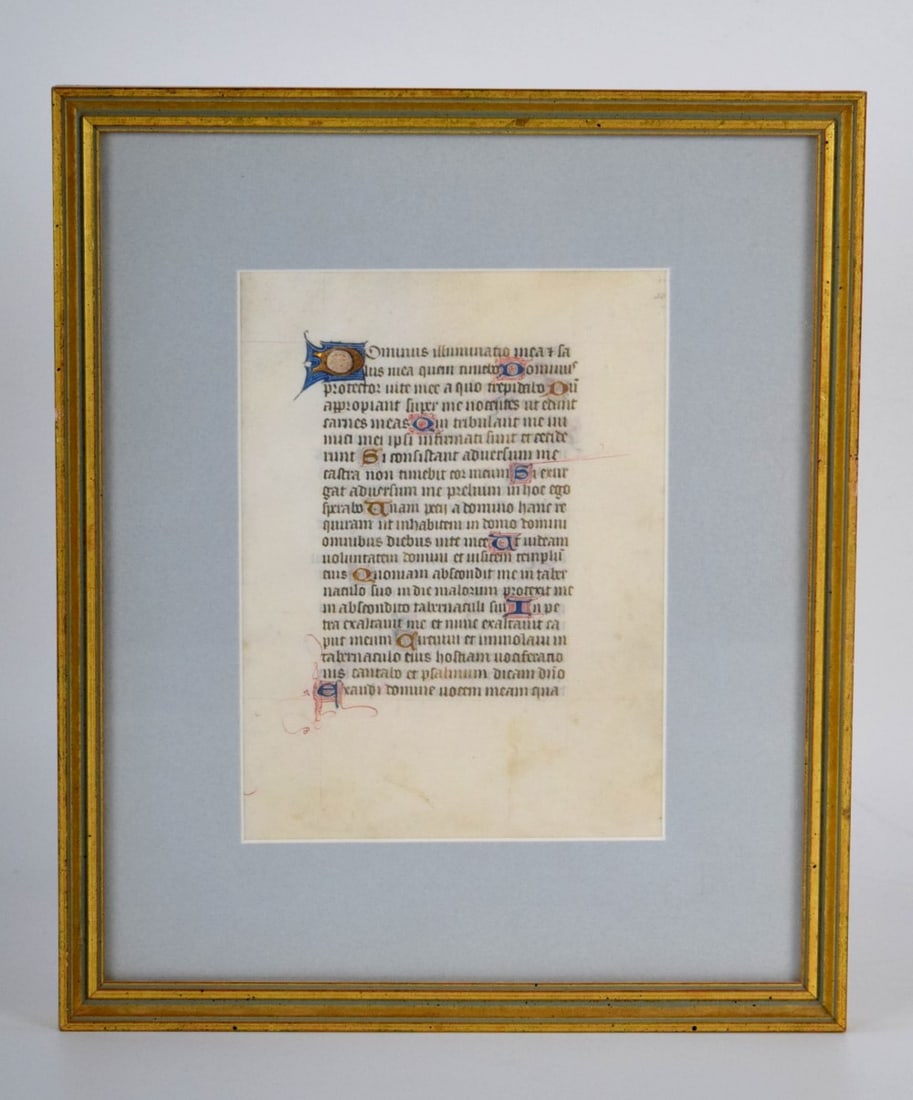 Dominus illuminatio mea ⁊ sa
lus mea quem timebo Dominus
protector uite mee a quo trepidabo Dū
appropiant super me nocentes ut edant
carnes meas Qui tribulant me ini
mici mei ipsi infirmati sunt et cecide
runt Si consistant adversum me
castra non timebit cor meum Si exur
gat adversum me prelium in hoc ego
sperabo Unam pecij a domino hanc re
quiram ut inhabitem in domo domini
omnibus diebus vite mee Ut uideam
uoluntatem domini et uisitem templū
eius Quoniam abscondit me in taber
naculo suo in die malorum protexit me
in abscondito tabernaculi sui In pe
tra exaltauit me et nunc exaltauit ca
put meum Circuiui et immolaui in
tabernaculo eius hostiam uociferatio
nis cantabo et psalmum dicam dn̄o
Exaudi domine uocem meam qua